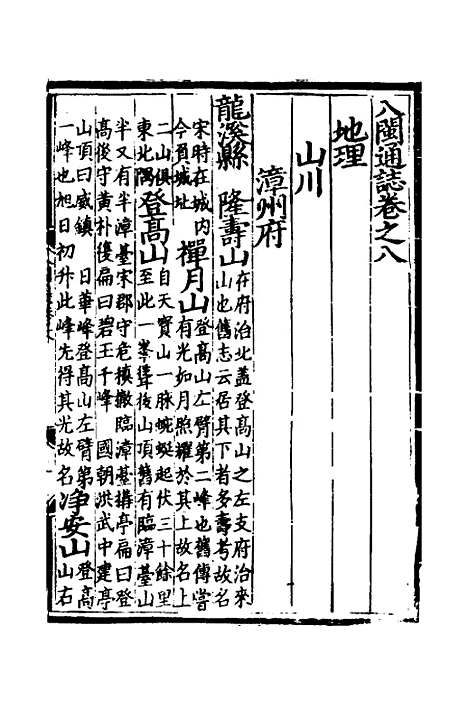 八閩通誌卷之八
地理
山川
漳州府
龍溪縣 隆壽山 在府治北蓋登高山之左支府治來
山也舊志云居其下者多壽考故名
宋時在城内
今負城址 禪月山 登高山左臂第二峰也舊傳嘗
有光如月照耀於其上故名上
二山俱
東北隅 登高山 自天寳山一脉蜿蜒起伏三十餘里
至此一峯聳後山頂舊有臨漳臺山
半又有半漳臺宋郡守危稹撤臨漳臺搆亭扁曰登
高後守黄朴復扁曰碧王千峰 國朝洪武中建亭
山頂曰威鎮 日華峰登高山左臂第
一峰也旭日初升此峰先得其光故名 净安山 登高
山右